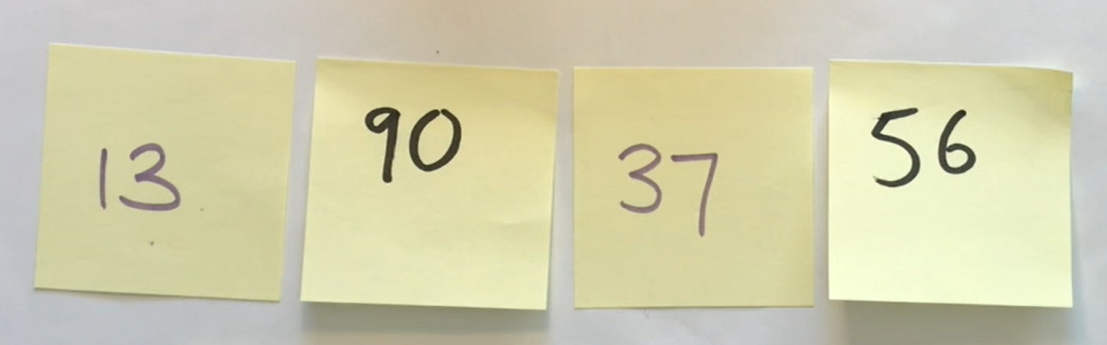 13 90 37 56